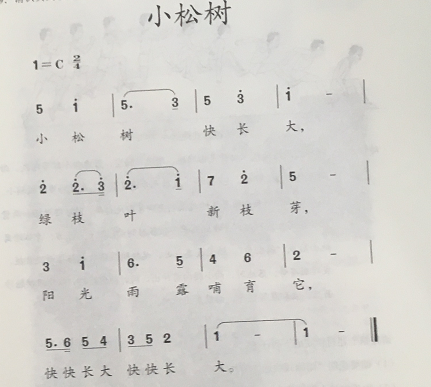 小松树
1=C 2/4
5 i̇ | 5. 3 | 5 3̇ | i̇ - |
小 松 树 快 长 大,
2̇ 2̇. 3̇ | 2̇. i̇ | 7 2̇ | 5 - |
绿 枝 叶 新 枝 芽,
3 i̇ | 6. 5 | 4 6 | 2 - |
阳 光 雨 露 哺 育 它,
5. 6 5 4 | 3 5 2 | 1 - | 1 - ‖
快 快 长 大 快 快 长 大。